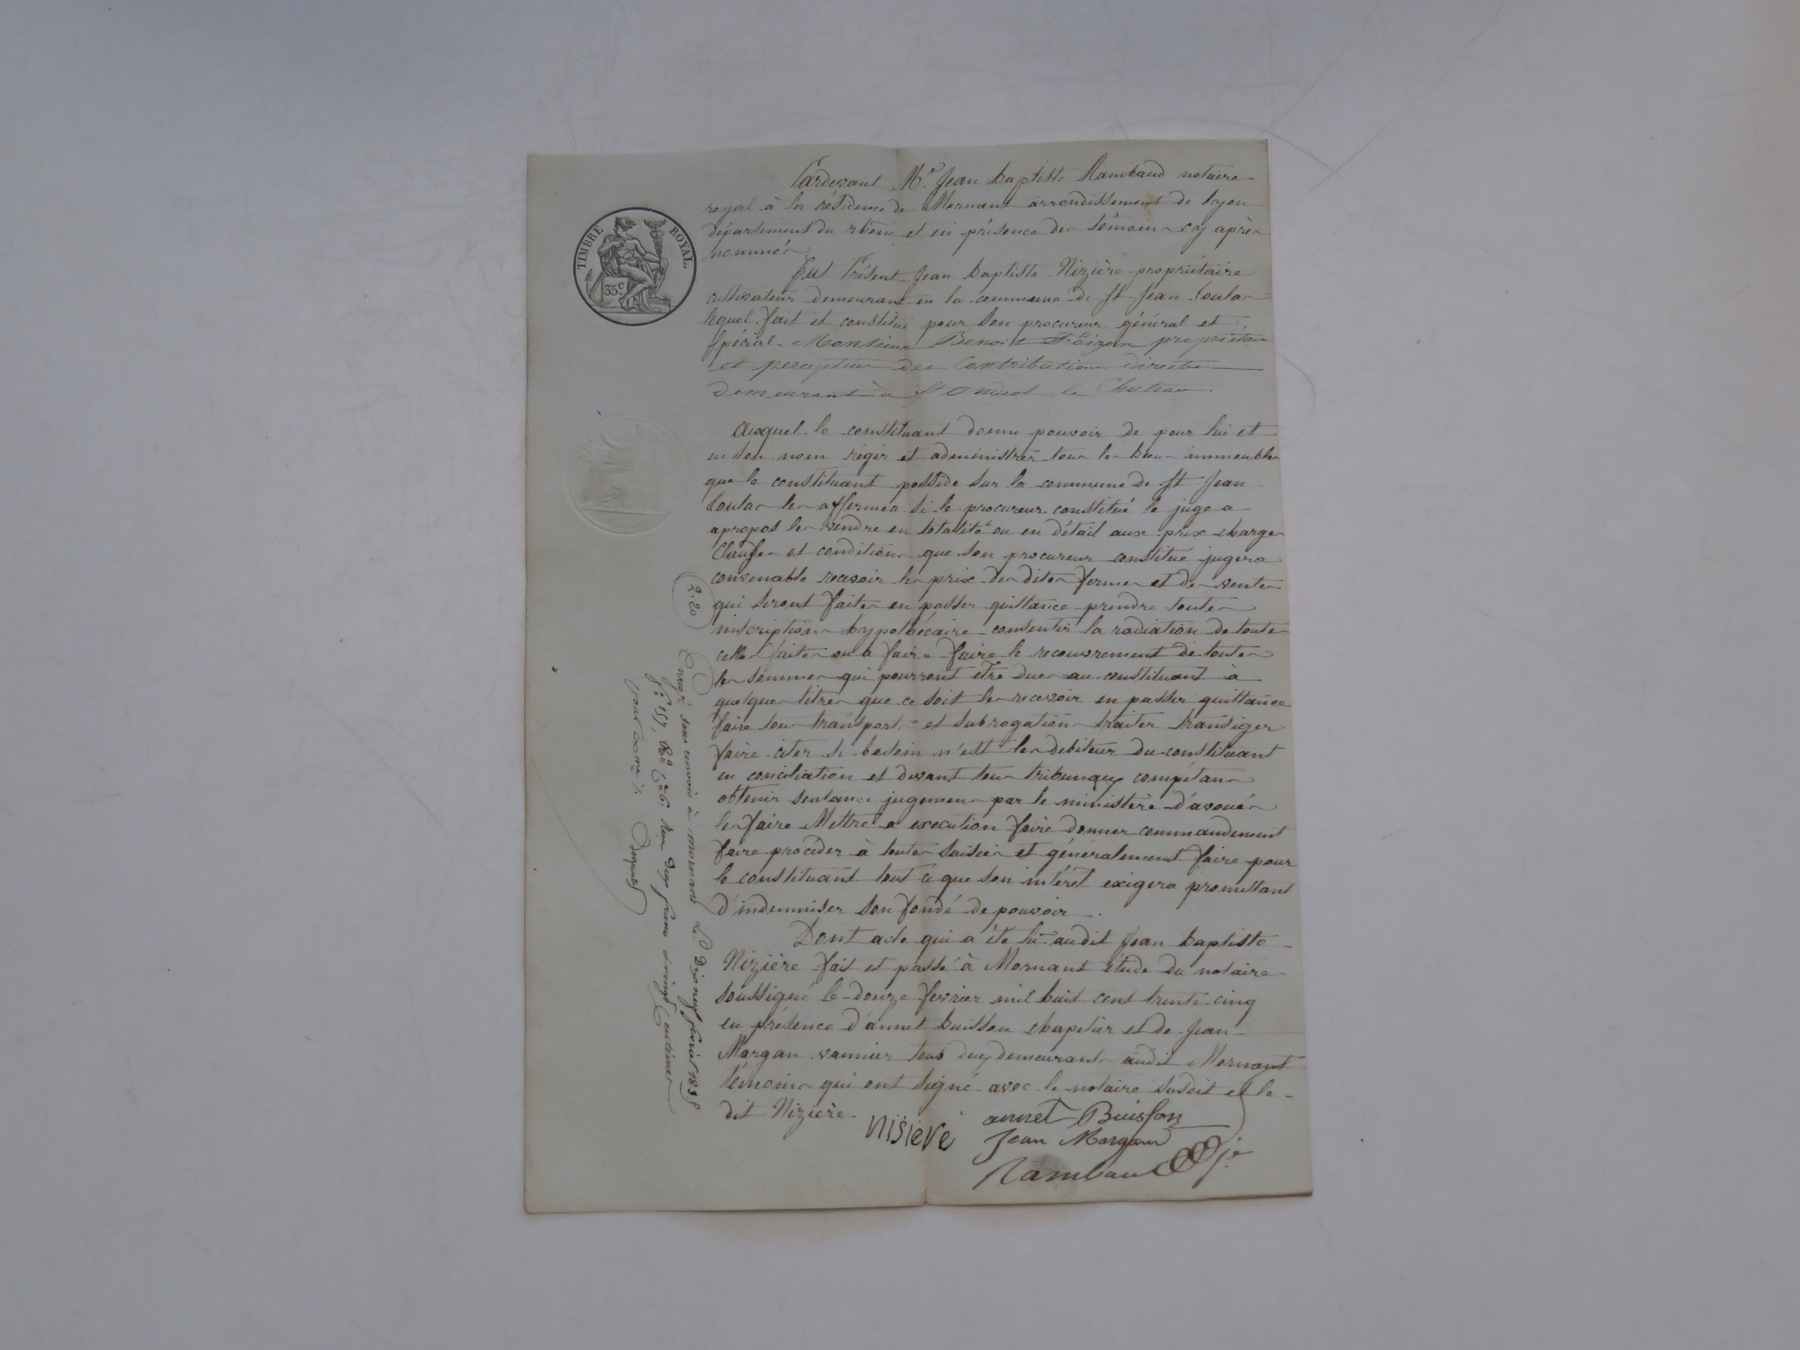 TIMBRE ROYAL.
35c.
Pardevant Me. Jean baptiste Rambaud notaire
royal à la résidence de Mornant arrondissement de lyon
département du rhône et en présence des témoins cy après
nommés
Est Présent Jean baptiste Nizière propriétaire
cultivateur demeurant en la commune de St Jean toulas
lequel fait et constitue pour son procureur général et
spécial Monsieur Benoit propriétaire
et percepteur des Contributions directes
demeurant à St Andéol le Chateau.
Auquel le constituant donne pouvoir de pour lui et
en son nom régir et administrer tous les biens immeubles
que le constituant possède sur la commune de St Jean
toulas les affermer si le procureur constitué le juge a
apropos les vendre en totalité ou en détail aux prix charges
clauses et conditions que son procureur constitué jugera
convenable recevoir les prix des dites fermes et des ventes
qui seront faites en passer quittance prendre toutes
inscriptions hypothécaire consentir la radiation de toutes
celles faites ou à faire faire le recouvrement de toutes
les sommes qui pourront être dues au constituant à
quelques titres que ce soit les recevoir en passer quittance
faire tous transports et subrogations traiter transiger
faire citer si besoin n'est les debiteurs du constituant
en conciliation et devant tous tribunaux compétans
obtenir sentance jugemens par le ministère d'avoués
les faire Mettre a execution faire donner commandement
faire proceder à toutes saisies et généralement faire pour
le constituant tout ce que son intérêt exigera promettant
d'indemniser son fondé de pouvoir.
Dont acte qui a été lu audit Jean baptiste
Nizière fait et passé à Mornant étude du notaire
soussigné le douze fevrier mil huit cent trente cinq
en présence d'annet buisson chapelier et de Jean
Morgan vannier tous deux demeurants audit Mornant
témoins qui ont signé avec le notaire susdit et le
dit Nizière.
nisiere
annet Buisson
Jean Morgand
Rambaud
2.20
Enregé sans renvois à mornant le Dixneuf février 1835
fo 157, Ro Ce 6. reçu deux francs vingt Centimes